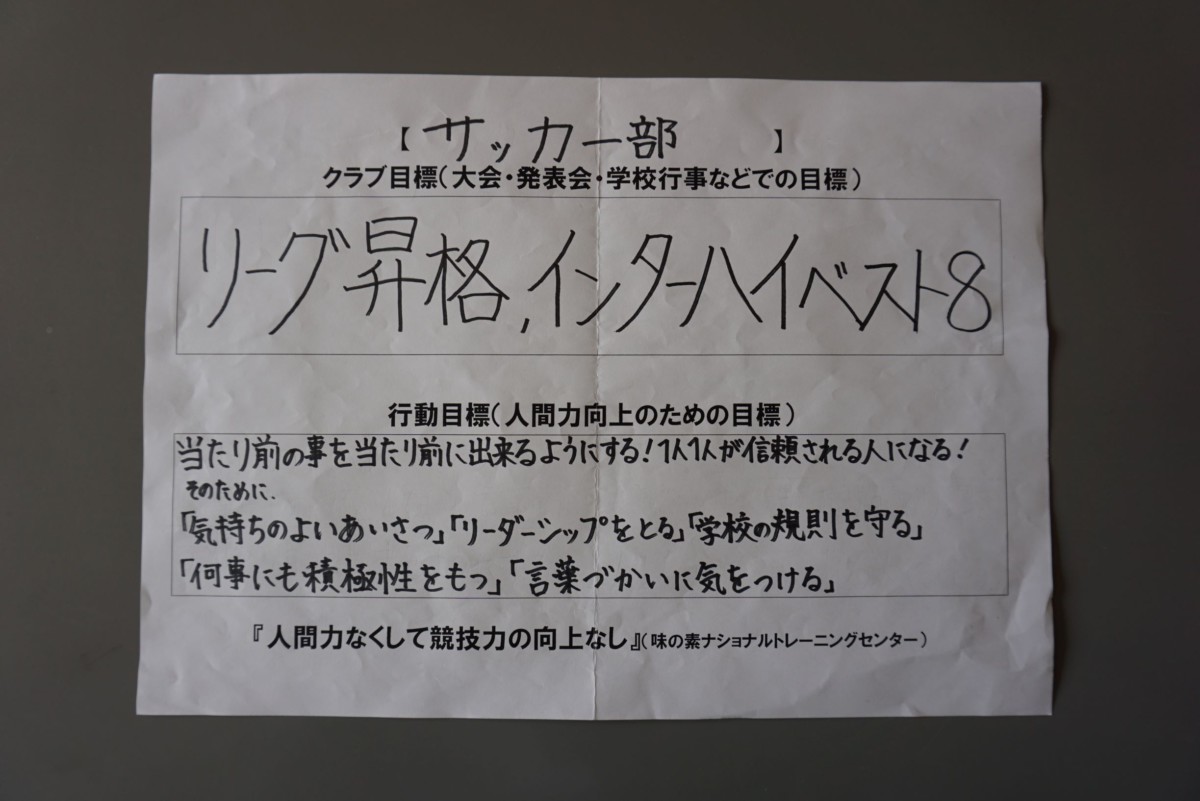 【 サッカー部 】
クラブ目標(大会・発表会・学校行事などでの目標)
リーグ昇格,インターハイベスト8
行動目標(人間力向上のための目標)
当たり前の事を当たり前に出来るようにする!1人1人が信頼される人になる!
そのために、
「気持ちのよいあいさつ」「リーダーシップをとる」「学校の規則を守る」
「何事にも積極性をもつ」「言葉づかいに気をつける」
『人間力なくして競技力の向上なし』(味の素ナショナルトレーニングセンター)